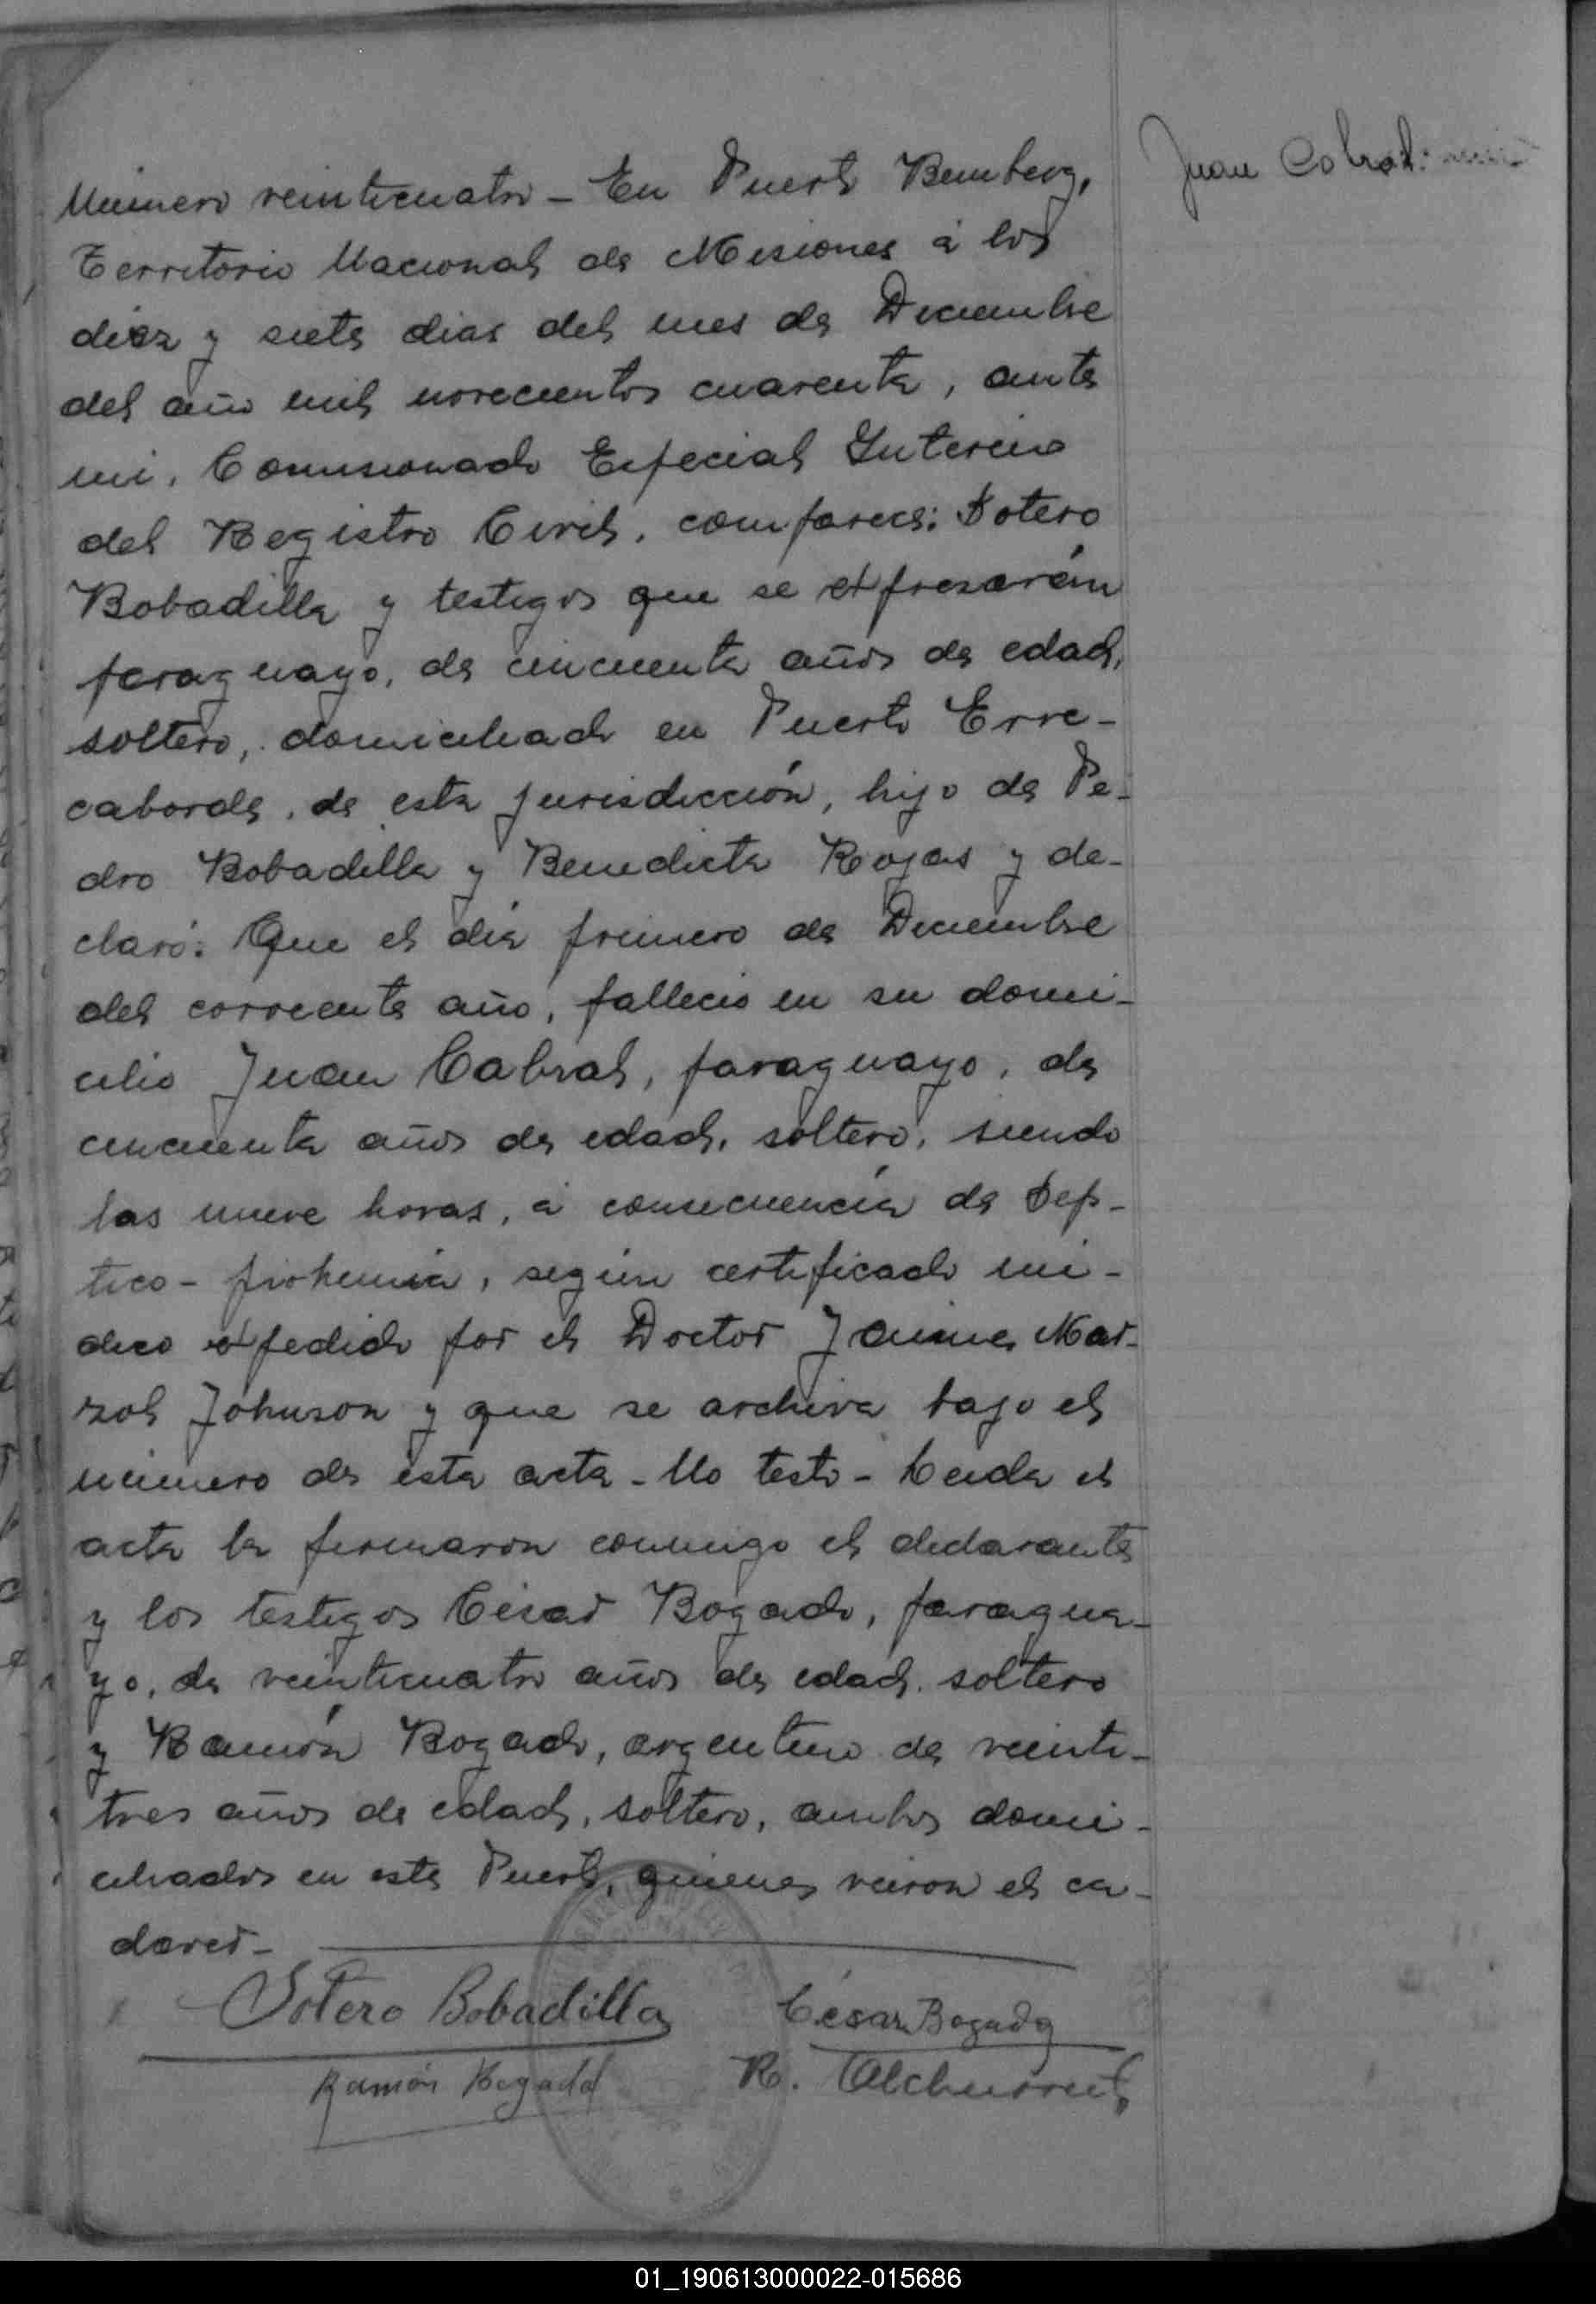 Juan Cabral.
Número veinticuatro - En Puerto Bemberg,
Territorio Nacional de Misiones á los
diez y siete dias del mes de Diciembre
del año mil novecientos cuarenta, ante
mi, Comisionado Especial Interino
del Registro Civil, comparece: Sotero
Bobadilla y testigos que se expresarán
paraguayo, de cincuenta años de edad,
soltero, domiciliado en Puerto Erre-
caborde, de esta jurisdicción, hijo de Pe-
dro Bobadilla y Benedicta Rojas y de-
claró: Que el día primero de Diciembre
del corriente año, falleció en su domi-
cilio Juan Cabral, paraguayo, de
cincuenta años de edad, soltero, siendo
las nueve horas, á consecuencia de Sep-
tico-piohemia, según certificado mé-
dico expedido por el Doctor Jaime Mar-
zol Johnson y que se archiva bajo el
número de esta acta - No testó - Leída el
acta la firmaron conmigo el declarante
y los testigos César Bogado, paragua-
yo, de veinticuatro años de edad, soltero
y Ramón Bogado, argentino de veinti-
tres años de edad, soltero, ambos domi-
ciliados en este Puerto, quienes vieron el ca-
daver -
Sotero Bobadilla César Bogado
Ramón Bogado R.
01_190613000022-015686